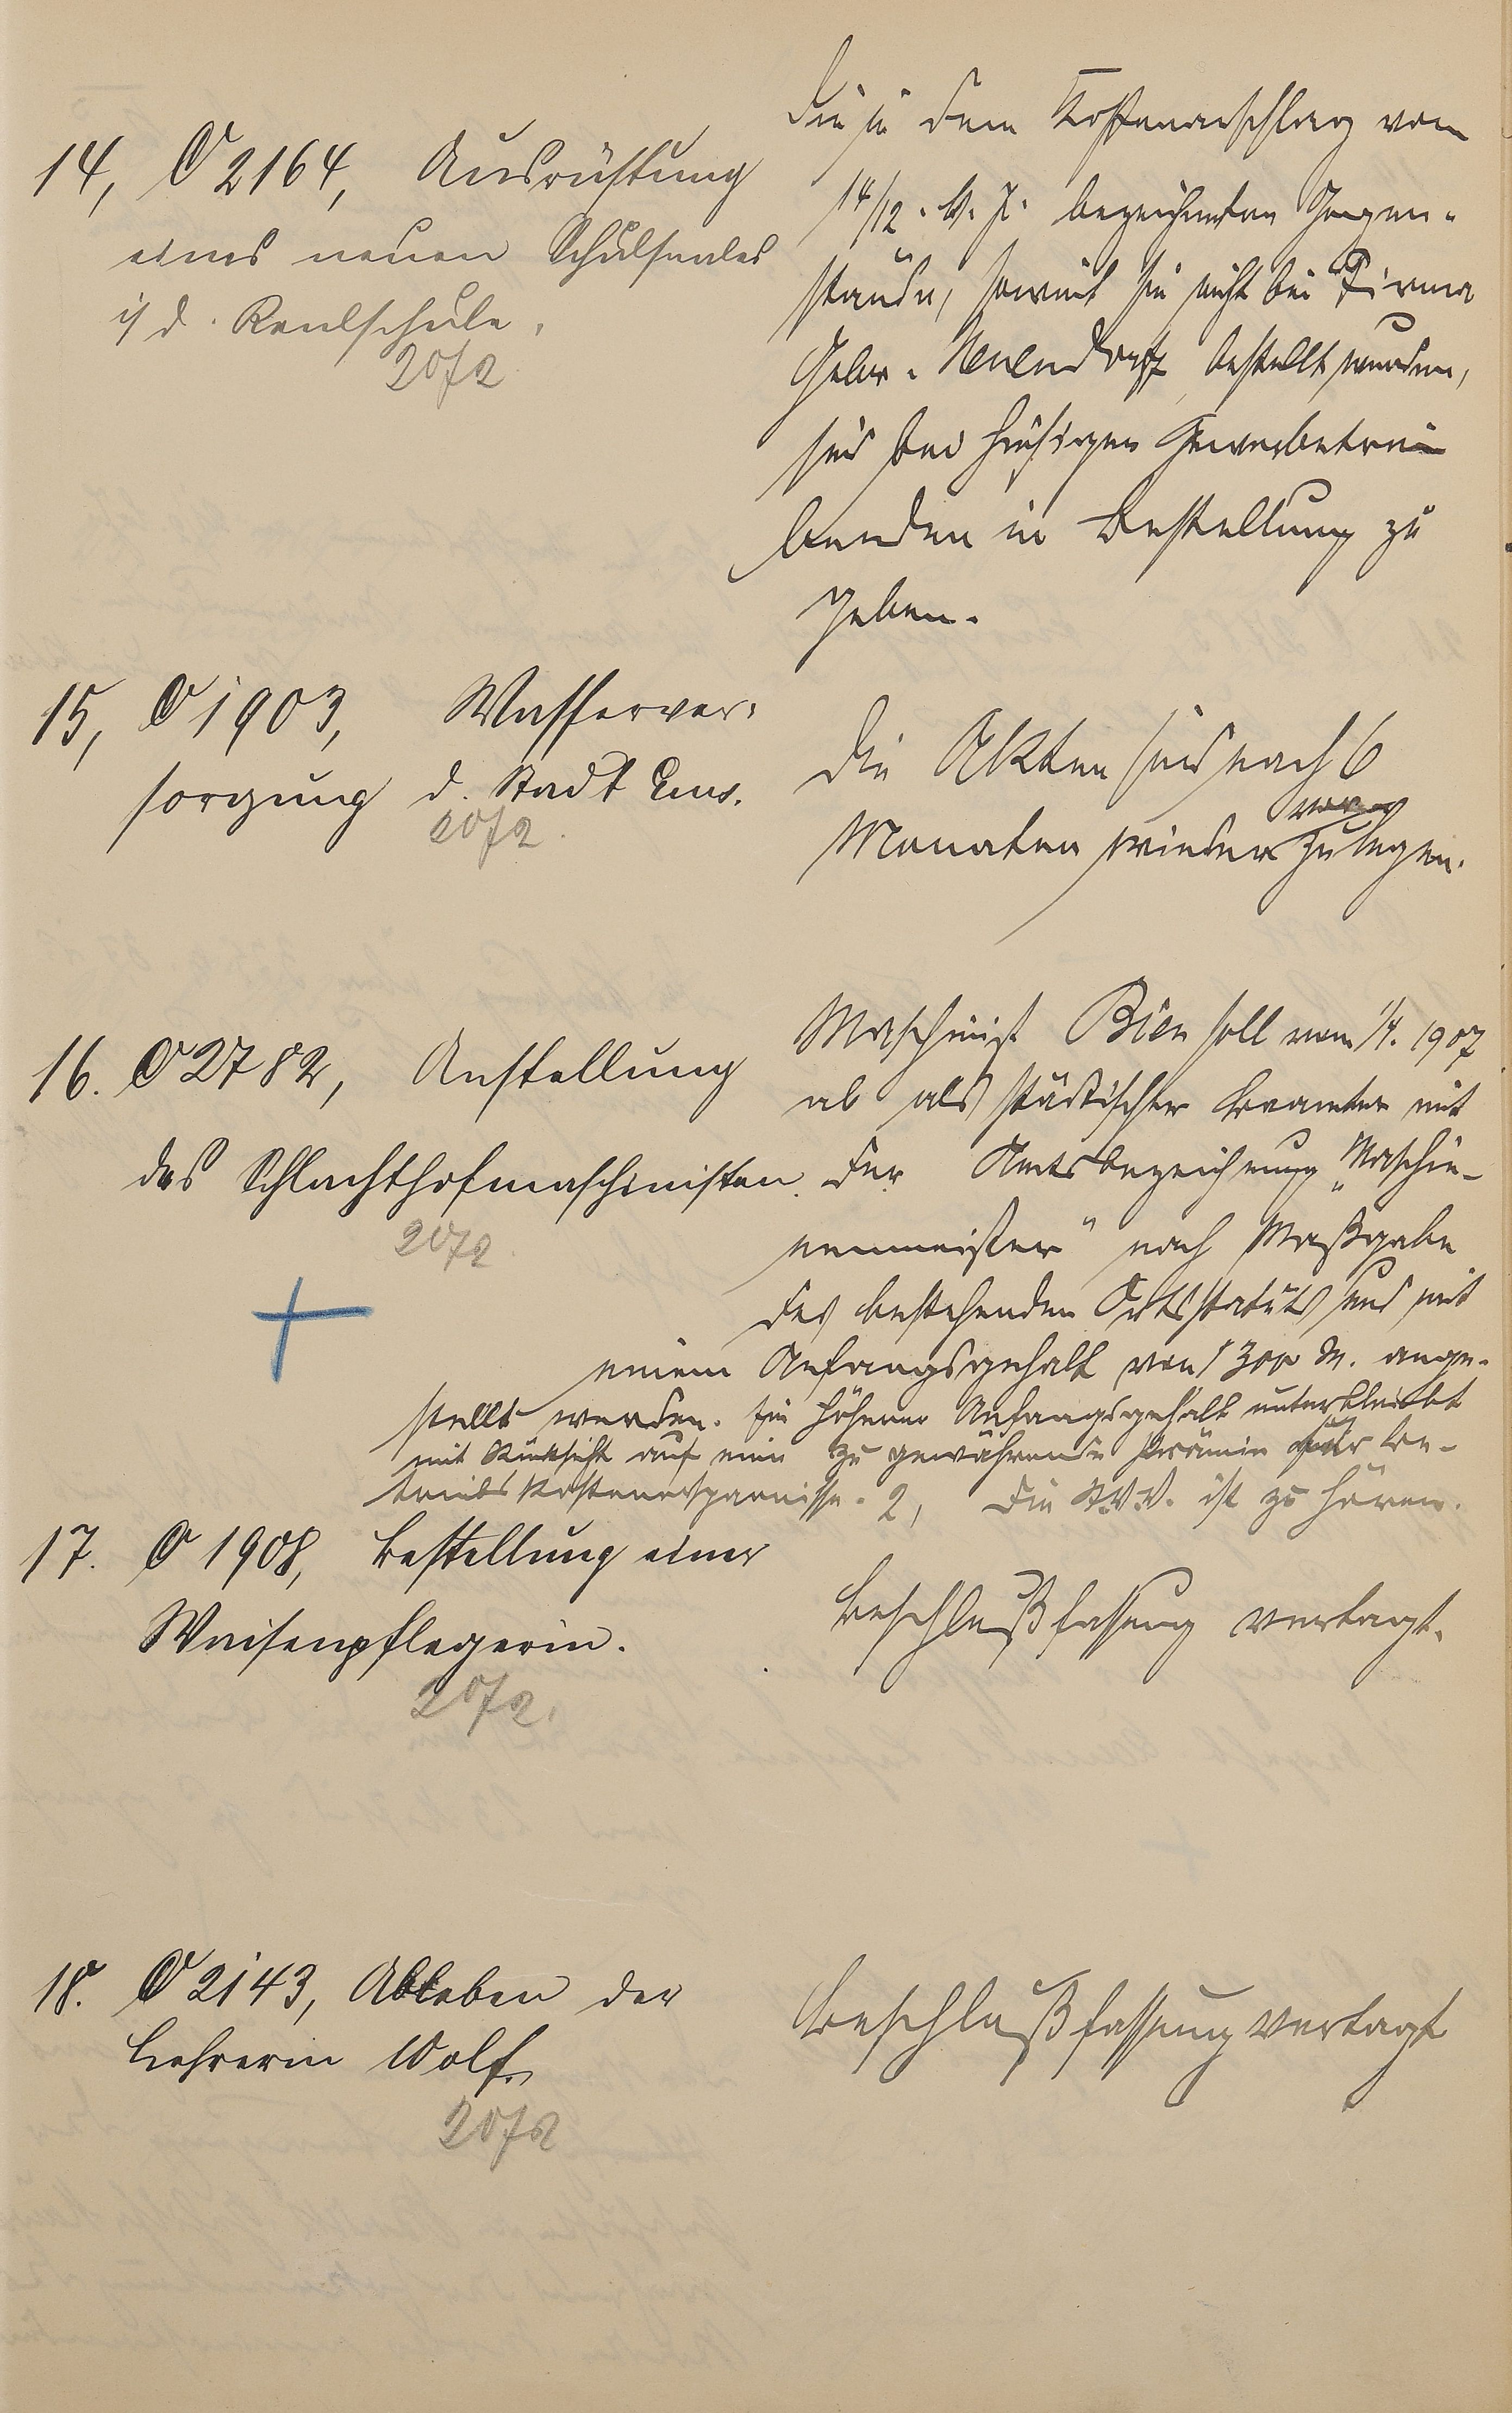 14, O 2164, Ausrüstung
eines neuen Schulsaales
i/d. Realschule.
2072
Die in dem Kostenanschlag vom
14/12. v. J. bezeichneten Gegen-
stände, soweit sie nicht bei Firma
Gebr. Neuendorff bestellt wurden,
sind bei hiesigen Gewerbetrei
benden in Bestellung zu
geben.
15, O 1903, Wasserver-
sorgung d. Stadt Ems.
2072.
Die Akten sind nach 6
Monaten wieder vorzulegen.
16. O 2782, Anstellung
des Schlachthofmaschinisten.
2072.
Maschinist Bien soll vom 1/4. 1907
ab als städtischer Beamter mit
der Amtsbezeichnung „Maschi-
nenmeister" nach Maßgabe
des bestehenden Ortsstatuts und mit
einem Anfangsgehalt von 1300 M. ange-
stellt werden. Ein höherer Anfangsgehalt unterbleibt
mit Rücksicht auf eine zu gewährende Prämie für Be-
triebskostenersparnisse. 2, Die St.V.V. ist zu hören.
17. O 1908, Bestellung einer
Waisenpflegerin.
2072.
Beschlußfassung vertagt.
18. O 2143, Ableben der
Lehrerin Wolf.
2072
Beschlußfassung vertagt